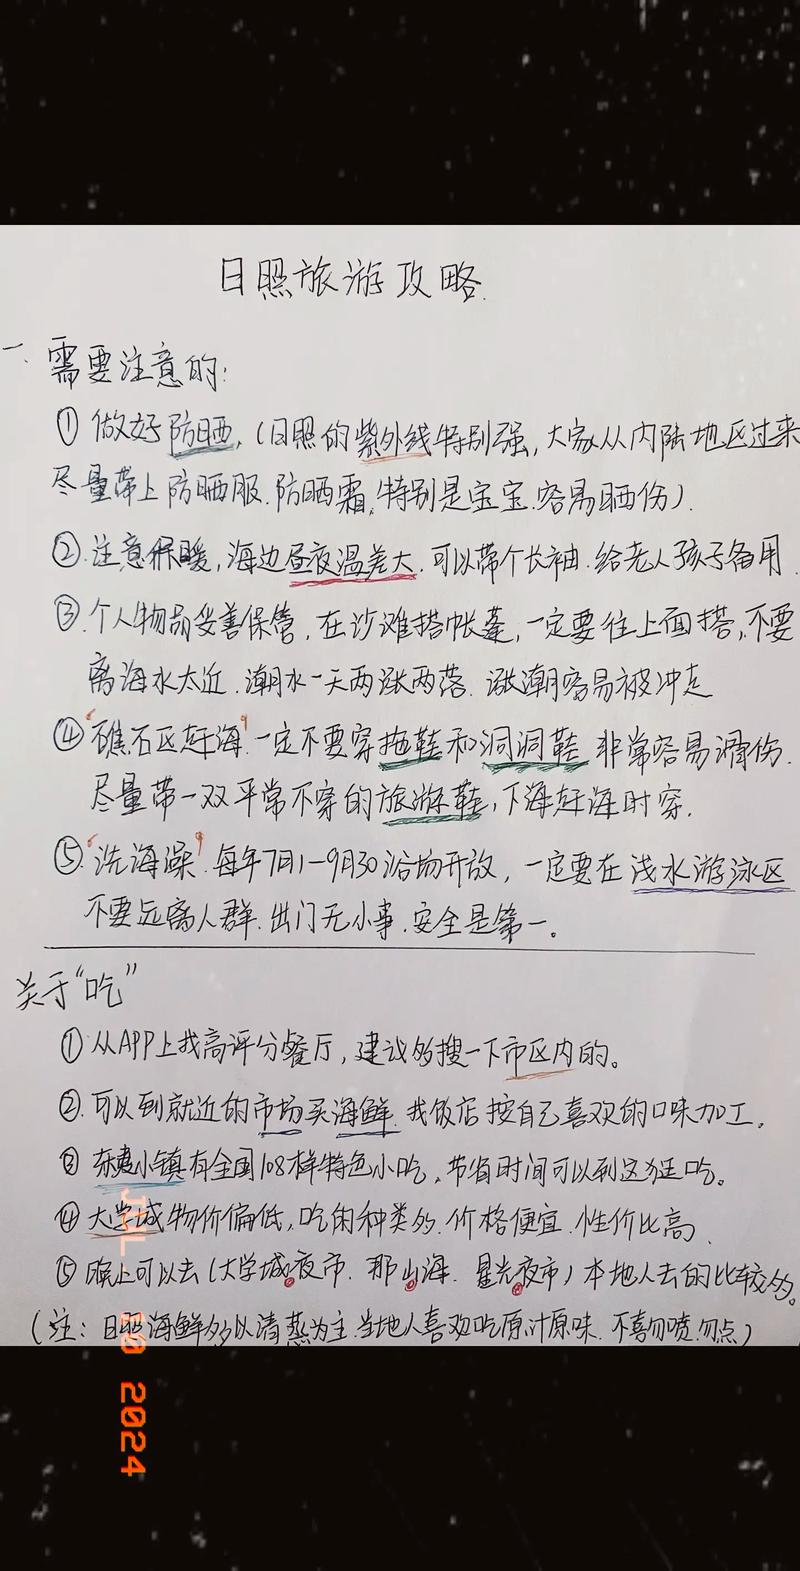 日照旅游攻略
一、需要注意的:
① 做好防晒,(日照的紫外线特别强,大家从内陆地区过来
尽量带上防晒服.防晒霜,特别是宝宝.容易晒伤).
②.注意保暖,海边昼夜温差大.可以带个长袖.给老人孩子备用
③.个人物品妥善保管,在沙滩搭帐蓬,一定要往上面搭,不要
离海水太近.潮水一天两涨两落.涨潮容易被冲走
④“礁石区赶海”一定不要穿拖鞋和洞洞鞋 非常容易滑伤.
尽量带一双平常不穿的旅游鞋,下海赶海时穿.
⑤“洗海澡”.每年7月1-9月30浴场开放,一定要在浅水游泳区
不要远离人群.出门无小事.安全是第一。
关于“吃”
① 从APP上找高评分餐厅,建议多搜一下市区内的。
②.可以到就近的市场买海鲜.找饭店按自己喜欢的口味加工。
③ 东夷小镇有全国108样特色小吃,节省时间可以到这逛吃。
④ 大学城物价偏低,吃的种类多.价格便宜.性价比高.
⑤ 晚上可以去(大学城夜市.那山海.星光夜市)本地人去的比较多。
(注:日照海鲜多以清蒸为主.当地人喜欢吃原汁原味.不喜勿喷.勿点)
2024